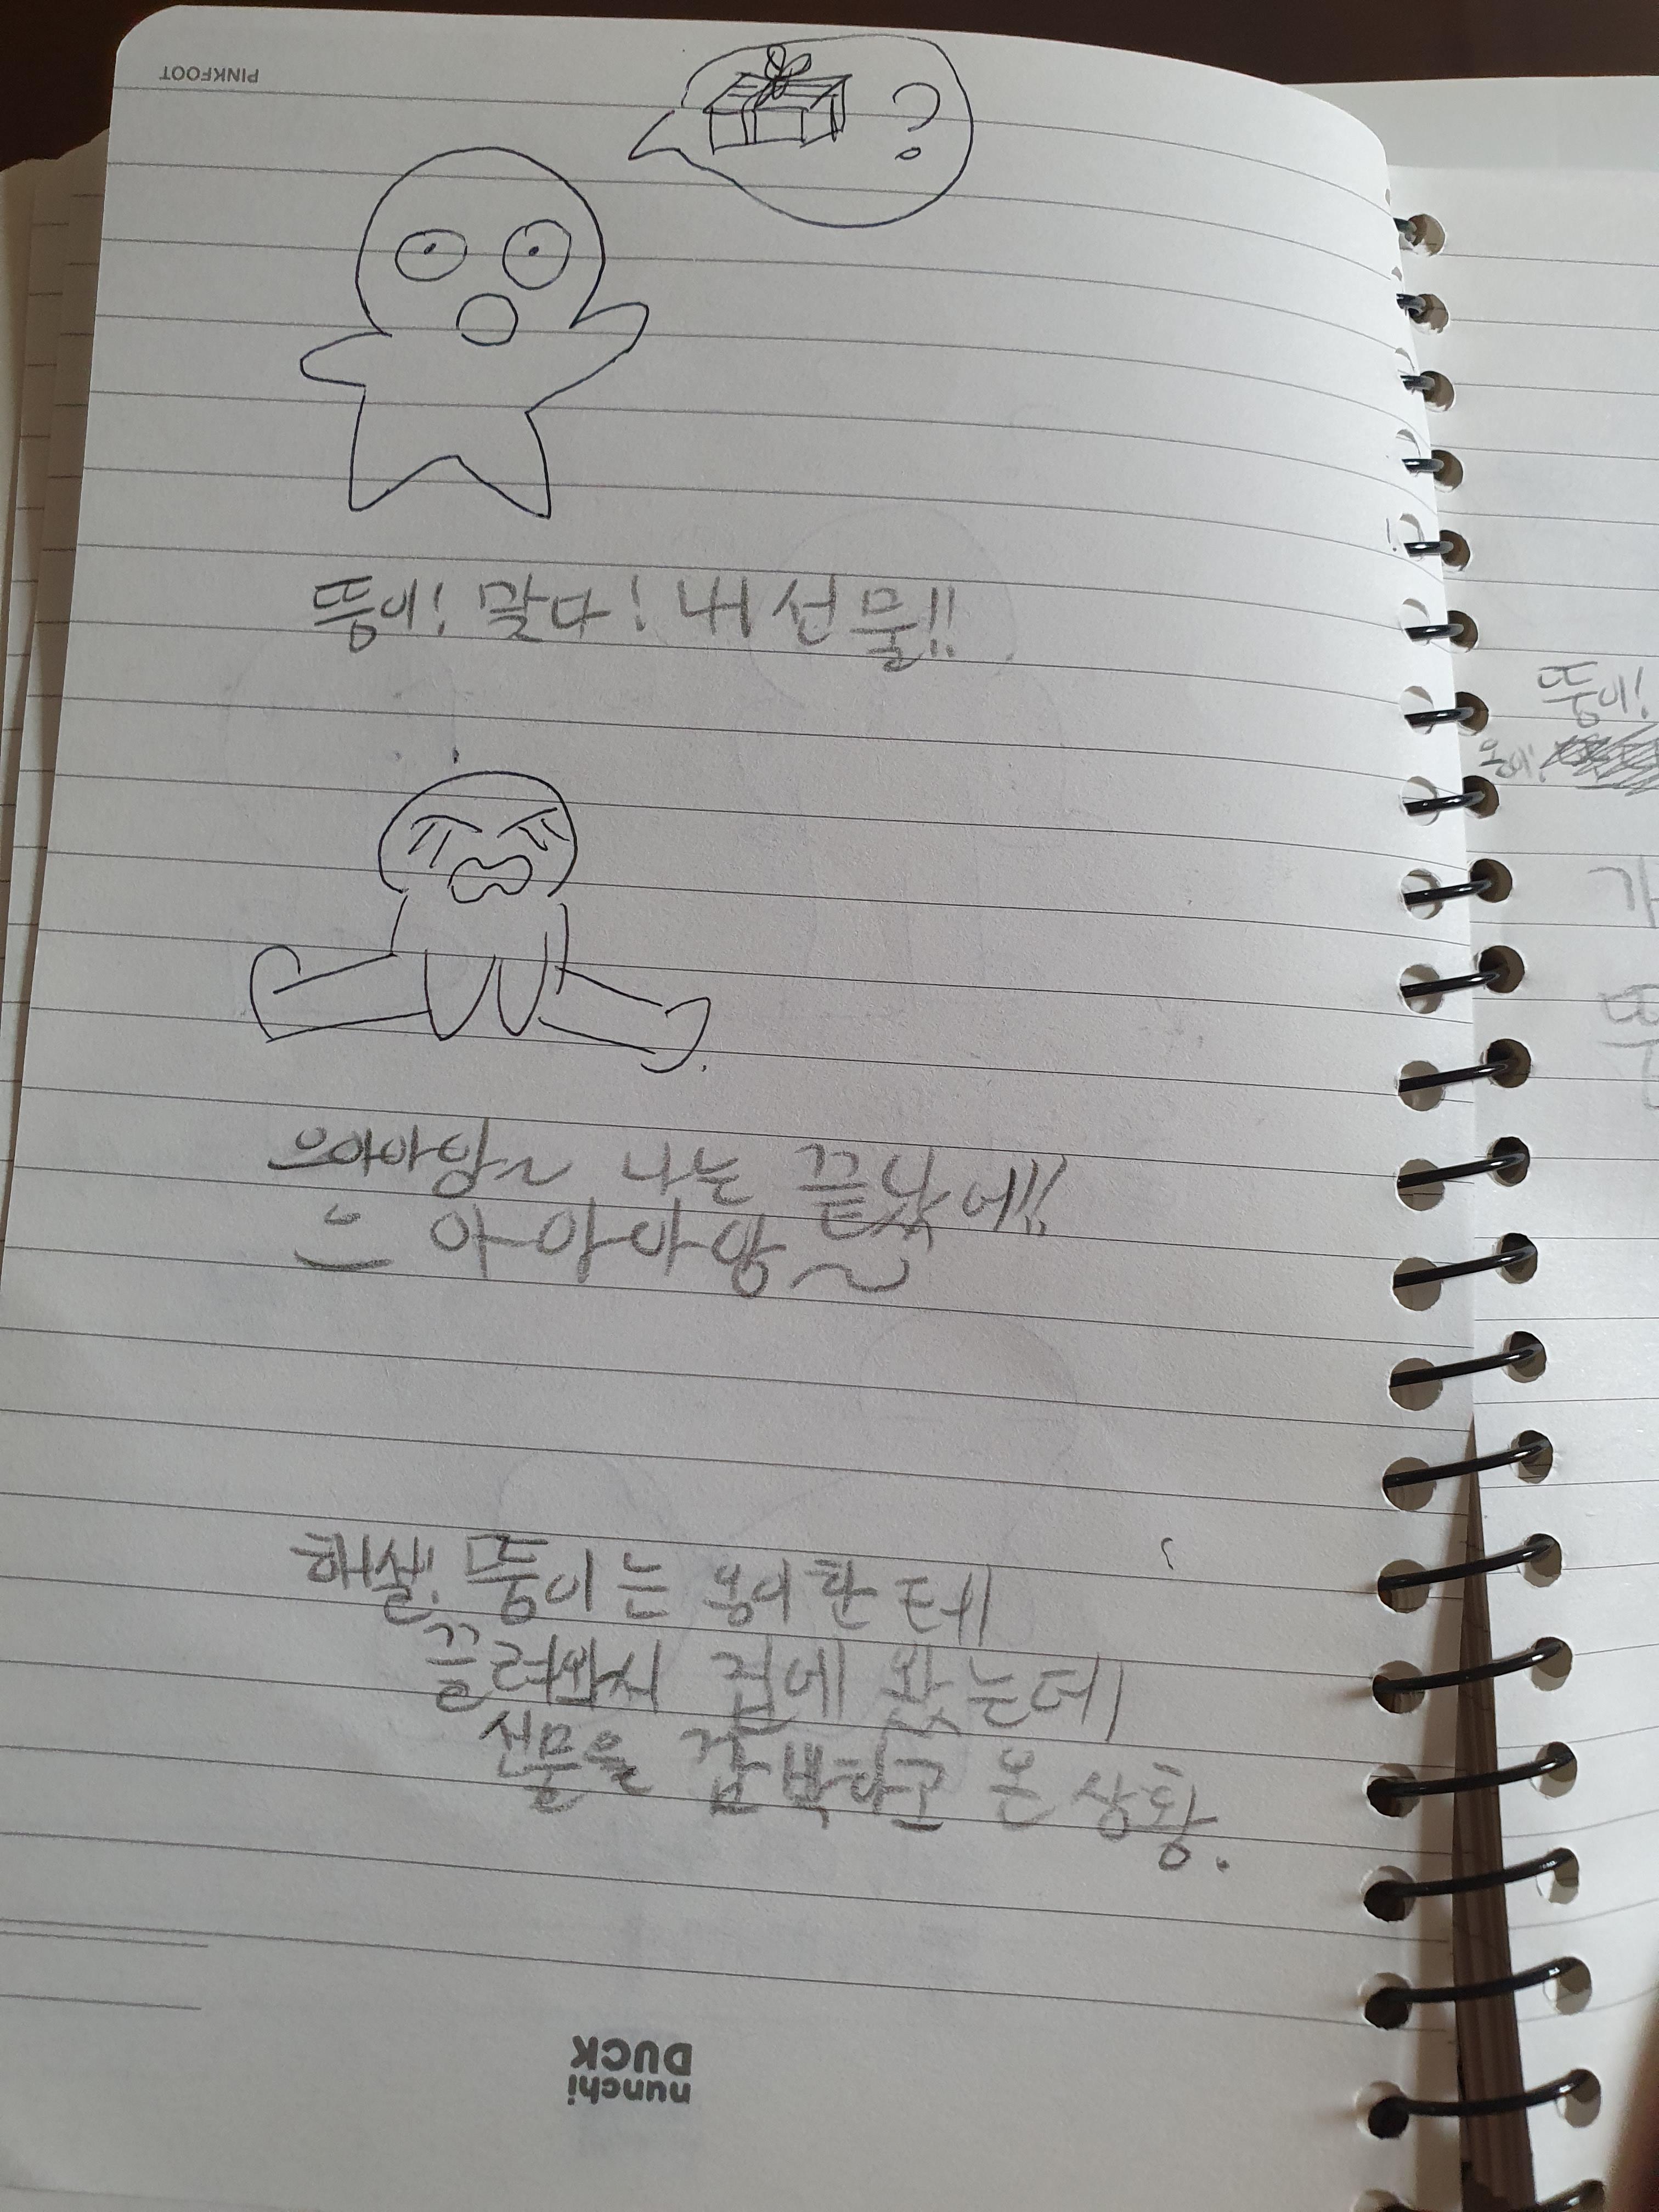 PINKFOOT
?
뚱이! 맞다! 내 선물!!
으아아앙~ 나는 끝났어!!
으 아앙아앙~
해설! 뚱이는 용이한테
끌려와서 집에 왔는데
선물을 깜박하고 온 상황.
nunchi
DUCK
뚱이!
용이!